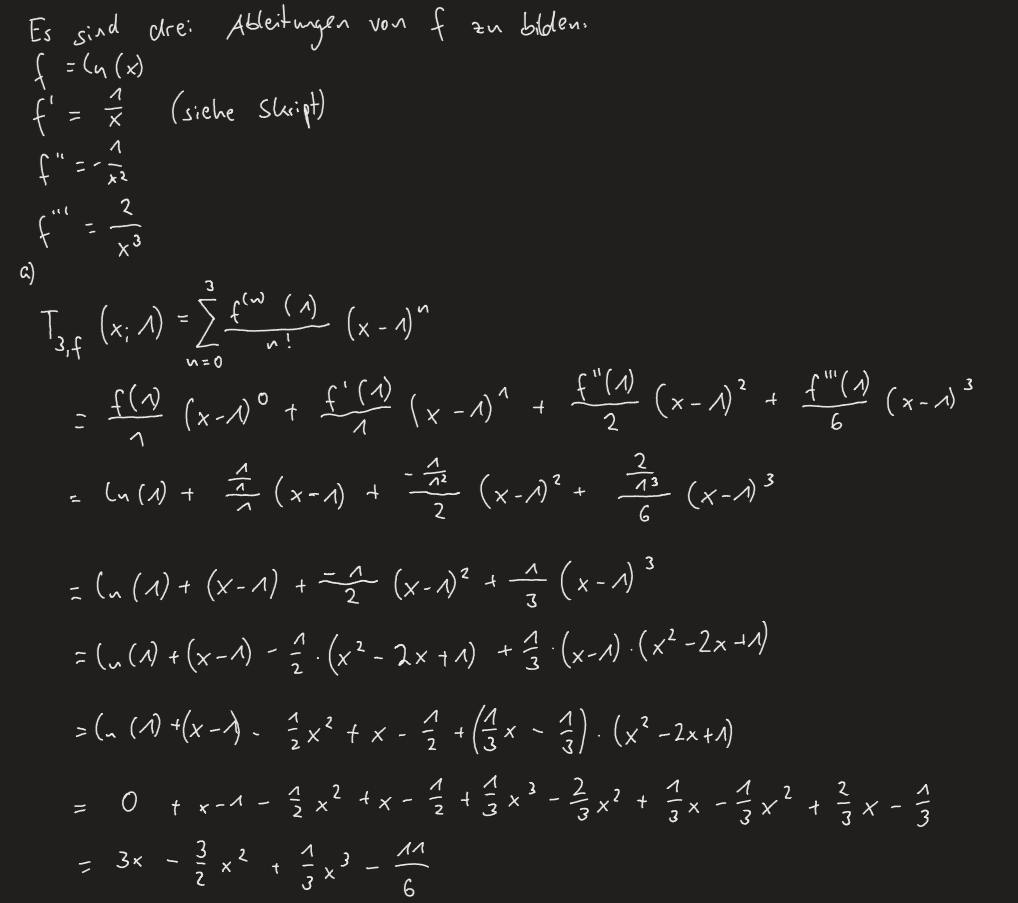 Es sind drei Ableitungen von f zu bilden.
f = ln(x)
f' = 1/x (siehe Skript)
f'' = -1/x²
f''' = 2/x³
a)
T_{3,f} (x; 1) = ∑_{n=0}^{3} f^{(n)}(1)/n! (x-1)^n
= f(1)/1 (x-1)^0 + f'(1)/1 (x-1)^1 + f''(1)/2 (x-1)² + f'''(1)/6 (x-1)³
= ln(1) + (1/1)/1 (x-1) + (-1/1²)/2 (x-1)² + (2/1³)/6 (x-1)³
= ln(1) + (x-1) + -1/2 (x-1)² + 1/3 (x-1)³
= ln(1) + (x-1) - 1/2 · (x² - 2x + 1) + 1/3 · (x-1) · (x² - 2x + 1)
= ln(1) + (x-1) - 1/2 x² + x - 1/2 + (1/3 x - 1/3) · (x² - 2x + 1)
= 0 + x - 1 - 1/2 x² + x - 1/2 + 1/3 x³ - 2/3 x² + 1/3 x - 1/3 x² + 2/3 x - 1/3
= 3x - 3/2 x² + 1/3 x³ - 11/6